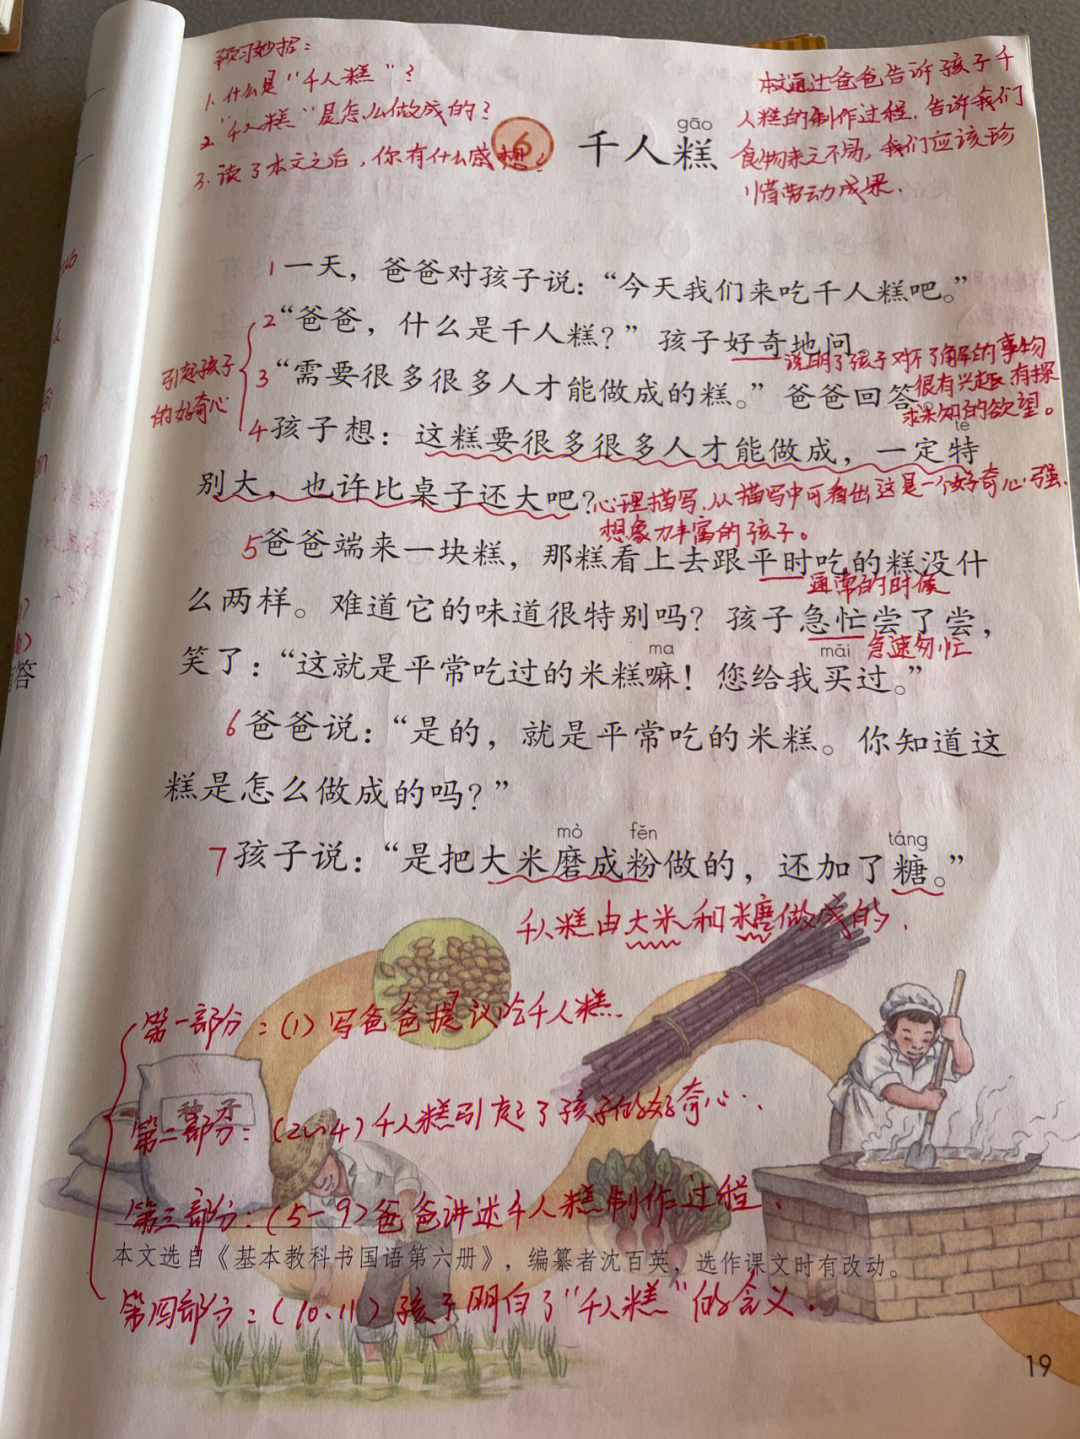 预习妙招：
1、什么是“千人糕”？
2、“千人糕”是怎么做成的？
3、读了本文之后，你有什么感想？
本文通过爸爸告诉孩子千
人糕的制作过程，告诉我们
食物来之不易，我们应该珍
惜劳动成果．
gāo
6 千人糕
1 一天，爸爸对孩子说：“今天我们来吃千人糕吧。”
2 “爸爸，什么是千人糕？”孩子好奇地问
说明了孩子对不了解的事物
很有兴趣，有探
求求知的欲望。
引起孩子
的好奇心
3 “需要很多很多人才能做成的糕。”爸爸回答
tè
4 孩子想：这糕要很多很多人才能做成，一定特
别大，也许比桌子还大吧？
心理描写，从描写中可看出这是一个好奇心强、
想象力丰富的孩子。
5 爸爸端来一块糕，那糕看上去跟平时吃的糕没什
通常的时候
么两样。难道它的味道很特别吗？孩子急忙尝了尝，
急速匆忙
ma mǎi
笑了：“这就是平常吃过的米糕嘛！您给我买过。”
6 爸爸说：“是的，就是平常吃的米糕。你知道这
糕是怎么做成的吗？”
mò fěn táng
7 孩子说：“是把大米磨成粉做的，还加了糖。”
千人糕由大米和糖做成的．
第一部分：（1）写爸爸提议吃千人糕．
种子
第二部分：（2~4）千人糕引起了孩子的好奇心．
第三部分：（5-9）爸爸讲述千人糕制作过程．
本文选自《基本教科书国语第六册》，编纂者沈百英，选作课文时有改动。
第四部分：（10、11）孩子明白了“千人糕”的含义．
19
答